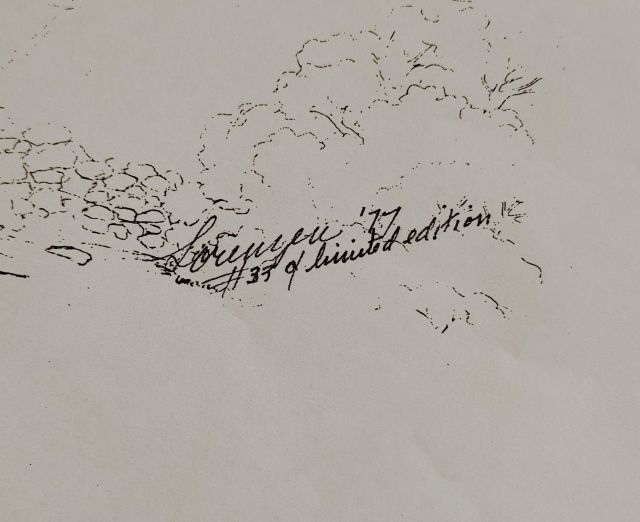 Sorensen '77
#33 of limited edition